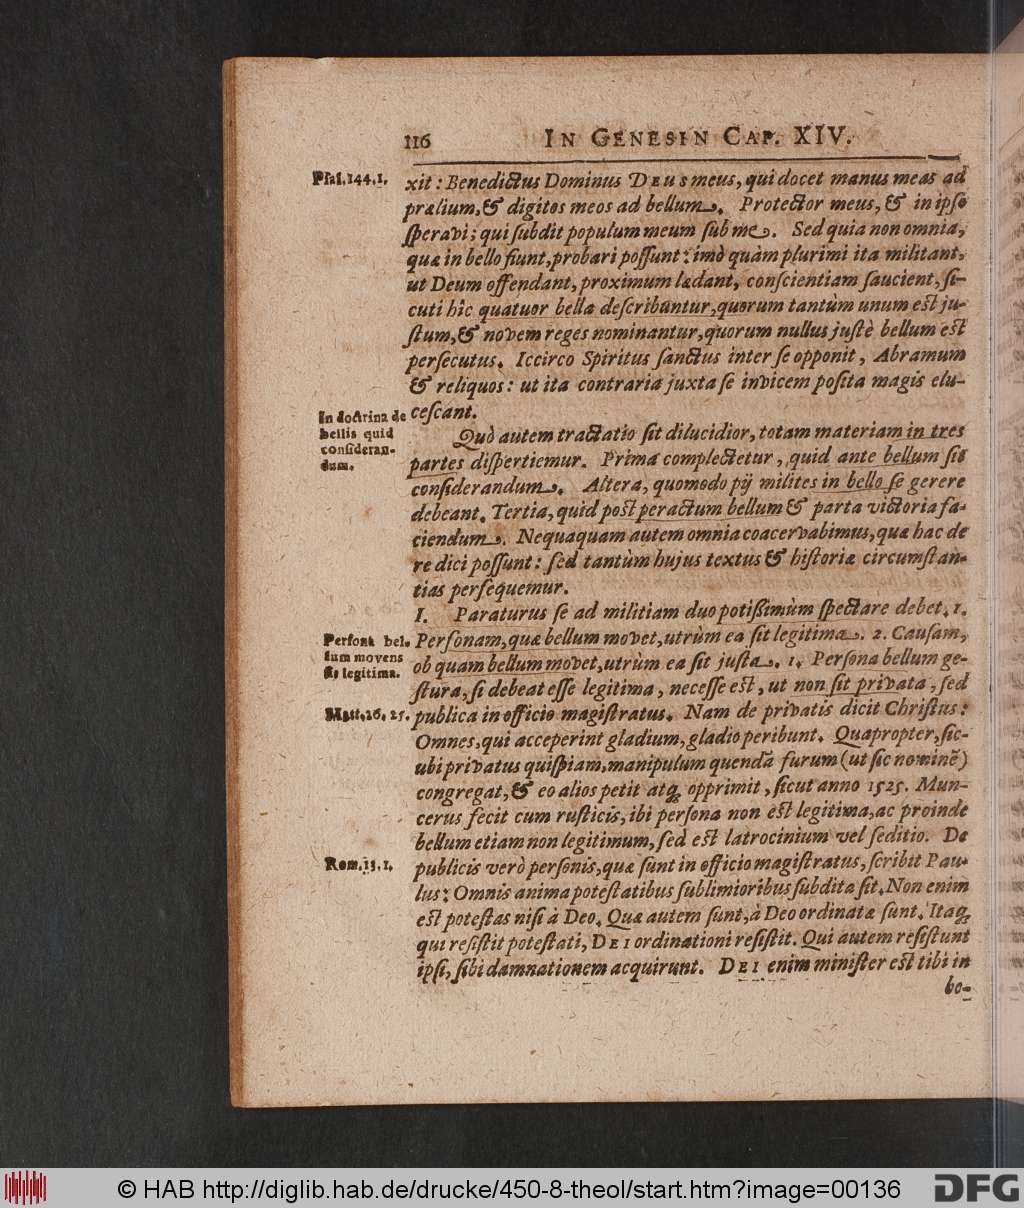 116 IN GENESIN CAP. XIV.
Psal. 144. 1.
xit: Benedictus Dominus DEUS meus, qui docet manus meas ad
prælium, & digitos meos ad bellum. Protector meus, & in ipso
speravi; qui subdit populum meum sub me. Sed quia non omnia,
quæ in bello fiunt, probari possunt: imò quàm plurimi ita militant,
ut Deum offendant, proximum lædant, conscientiam saucient, si-
cuti hîc quatuor bella describuntur, quorum tantùm unum est ju-
stum, & novem reges nominantur, quorum nullus justè bellum est
persecutus. Iccirco Spiritus sanctus inter se opponit, Abramum
& reliquos: ut ita contraria juxta se invicem posita magis elu-
cescant.
In doctrina de
bellis quid
consideran-
dum.
Quò autem tractatio sit dilucidior, totam materiam in tres
partes dispertiemur. Prima complectetur, quid ante bellum sit
considerandum. Altera, quomodo pij milites in bello se gerere
debeant. Tertia, quid post peractum bellum & parta victoria fa-
ciendum. Nequaquam autem omnia coacervabimus, quæ hac de
re dici possunt: sed tantùm hujus textus & historiæ circumstan-
tias persequemur.
I. Paraturus se ad militiam duo potißimùm spectare debet. 1.
Persona bel-
lum movens
sit legitima.
Personam, quæ bellum movet, utrùm ea sit legitima. 2. Causam,
ob quam bellum movet, utrùm ea sit justa. 1. Persona bellum ge-
stura, si debeat esse legitima, necesse est, ut non sit privata, sed
Matt. 26. 25.
publica in officio magistratus. Nam de privatis dicit Christus:
Omnes, qui acceperint gladium, gladio peribunt. Quapropter, sic-
ubi privatus quispiam, manipulum quendã furum (ut sic nominẽ)
congregat, & eo alios petit atq; opprimit, sicut anno 1525. Mun-
cerus fecit cum rusticis, ibi persona non est legitima, ac proinde
bellum etiam non legitimum, sed est latrocinium vel seditio. De
Rom. 13. 1.
publicis verò personis, quæ sunt in officio magistratus, scribit Pau-
lus: Omnis anima potestatibus sublimioribus subdita sit. Non enim
est potestas nisi à Deo. Quæ autem sunt, à Deo ordinatæ sunt. Itaq;
qui resistit potestati, DEI ordinationi resistit. Qui autem resistunt
ipsi, sibi damnationem acquirunt. DEI enim minister est tibi in
bo-
© HAB http://diglib.hab.de/drucke/450-8-theol/start.htm?image=00136
DFG